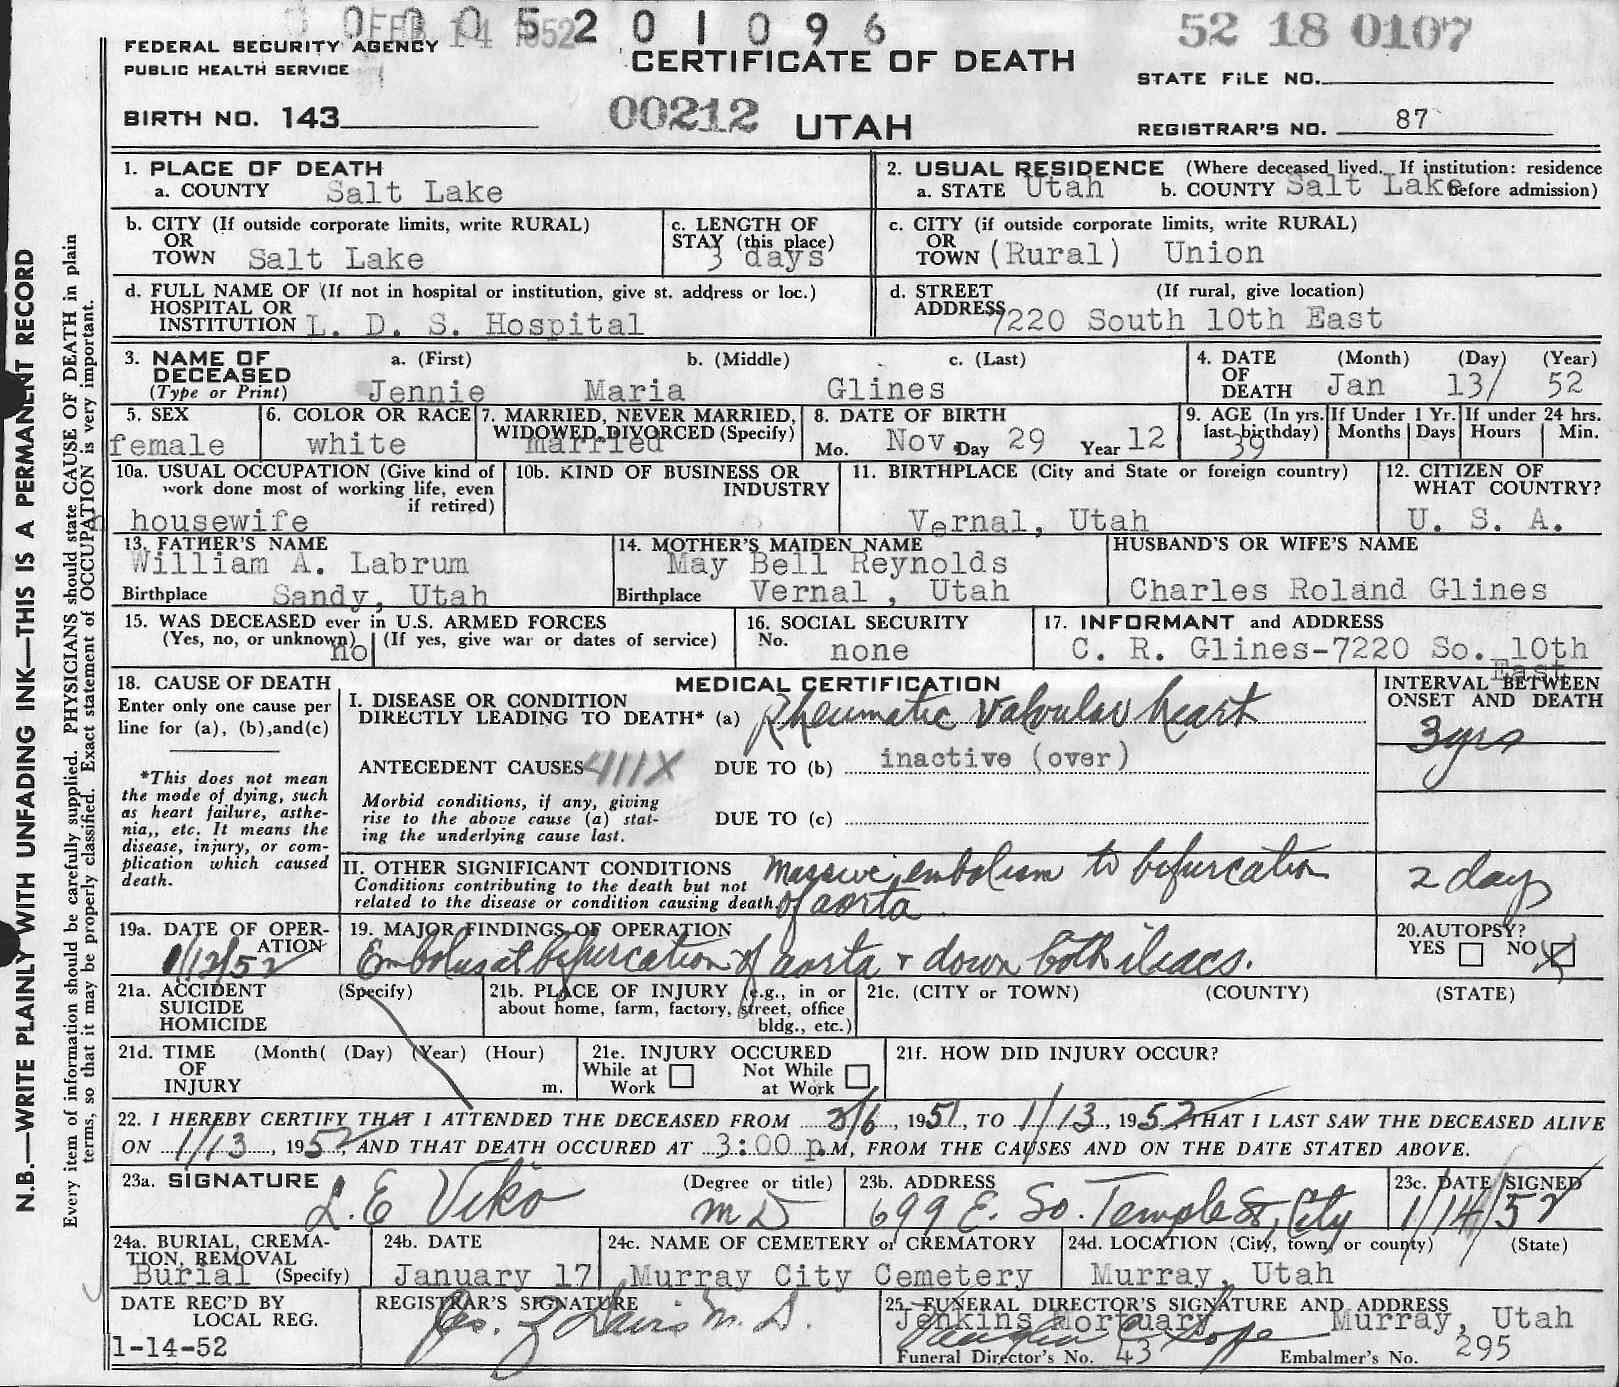 000520 1096
FEB 14 1952
52 18 0107
FEDERAL SECURITY AGENCY
PUBLIC HEALTH SERVICE
CERTIFICATE OF DEATH
STATE FILE NO.
BIRTH NO. 143
00212 UTAH
REGISTRAR'S NO. 87
N.B.—WRITE PLAINLY WITH UNFADING INK—THIS IS A PERMANENT RECORD
Every item of information should be carefully supplied. PHYSICIANS should state CAUSE OF DEATH in plain
terms, so that it may be properly classified. Exact statement of OCCUPATION is very important.
1. PLACE OF DEATH
a. COUNTY Salt Lake
2. USUAL RESIDENCE (Where deceased lived. If institution: residence
a. STATE Utah b. COUNTY Salt Lake before admission)
b. CITY (If outside corporate limits, write RURAL)
OR
TOWN Salt Lake
c. LENGTH OF
STAY (this place)
3 days
c. CITY (if outside corporate limits, write RURAL)
OR
TOWN (Rural) Union
d. FULL NAME OF (If not in hospital or institution, give st. address or loc.)
HOSPITAL OR
INSTITUTION L. D. S. Hospital
d. STREET (If rural, give location)
ADDRESS 7220 South 10th East
3. NAME OF a. (First) b. (Middle) c. (Last)
DECEASED
(Type or Print) Jennie Maria Glines
4. DATE (Month) (Day) (Year)
OF
DEATH Jan 13/ 52
5. SEX
female
6. COLOR OR RACE
white
7. MARRIED, NEVER MARRIED,
WIDOWED, DIVORCED (Specify)
married
8. DATE OF BIRTH
Mo. Nov Day 29 Year 12
9. AGE (In yrs.
last birthday)
39
If Under 1 Yr.
Months Days
If under 24 hrs.
Hours Min.
10a. USUAL OCCUPATION (Give kind of
work done most of working life, even
if retired)
housewife
10b. KIND OF BUSINESS OR
INDUSTRY
11. BIRTHPLACE (City and State or foreign country)
Vernal, Utah
12. CITIZEN OF
WHAT COUNTRY?
U. S. A.
13. FATHER'S NAME
William A. Labrum
Birthplace Sandy, Utah
14. MOTHER'S MAIDEN NAME
May Bell Reynolds
Birthplace Vernal , Utah
HUSBAND'S OR WIFE'S NAME
Charles Roland Glines
15. WAS DECEASED ever in U.S. ARMED FORCES
(Yes, no, or unknown) (If yes, give war or dates of service)
no
16. SOCIAL SECURITY
No.
none
17. INFORMANT and ADDRESS
C. R. Glines-7220 So. 10th
East
18. CAUSE OF DEATH
Enter only one cause per
line for (a), (b),and(c)
*This does not mean
the mode of dying, such
as heart failure, asthe-
nia,, etc. It means the
disease, injury, or com-
plication which caused
death.
MEDICAL CERTIFICATION
I. DISEASE OR CONDITION
DIRECTLY LEADING TO DEATH* (a) Rheumatic valvular heart
ANTECEDENT CAUSES 411X DUE TO (b) inactive (over)
Morbid conditions, if any, giving
rise to the above cause (a) stat-
ing the underlying cause last.
DUE TO (c)
INTERVAL BETWEEN
ONSET AND DEATH
3 yrs
II. OTHER SIGNIFICANT CONDITIONS
Conditions contributing to the death but not
related to the disease or condition causing death.
Massive embolism to bifurcation
of aorta
2 days
19a. DATE OF OPER-
ATION
1/12/52
19. MAJOR FINDINGS OF OPERATION
Embolus at bifurcation of aorta + down both iliacs.
20.AUTOPSY?
YES NO X
21a. ACCIDENT (Specify)
SUICIDE
HOMICIDE
21b. PLACE OF INJURY (e.g., in or
about home, farm, factory, street, office
bldg., etc.)
21c. (CITY or TOWN) (COUNTY) (STATE)
21d. TIME (Month( (Day) (Year) (Hour)
OF
INJURY m.
21e. INJURY OCCURED
While at Not While
Work at Work
21f. HOW DID INJURY OCCUR?
22. I HEREBY CERTIFY THAT I ATTENDED THE DECEASED FROM 2/6, 1951, TO 1/13, 1952 THAT I LAST SAW THE DECEASED ALIVE
ON 1/13, 1952, AND THAT DEATH OCCURED AT 3:00 p.M, FROM THE CAUSES AND ON THE DATE STATED ABOVE.
23a. SIGNATURE (Degree or title)
L. E Viko MD
23b. ADDRESS
699 E. So. Temple St, City
23c. DATE SIGNED
1/14/52
24a. BURIAL, CREMA-
TION, REMOVAL
Burial (Specify)
24b. DATE
January 17
24c. NAME OF CEMETERY or CREMATORY
Murray City Cemetery
24d. LOCATION (City, town, or county) (State)
Murray, Utah
DATE REC'D BY
LOCAL REG.
1-14-52
REGISTRAR'S SIGNATURE
M. D.
25. FUNERAL DIRECTOR'S SIGNATURE AND ADDRESS
Jenkins Mortuary Murray, Utah
Funeral Director's No. 43 Embalmer's No. 295